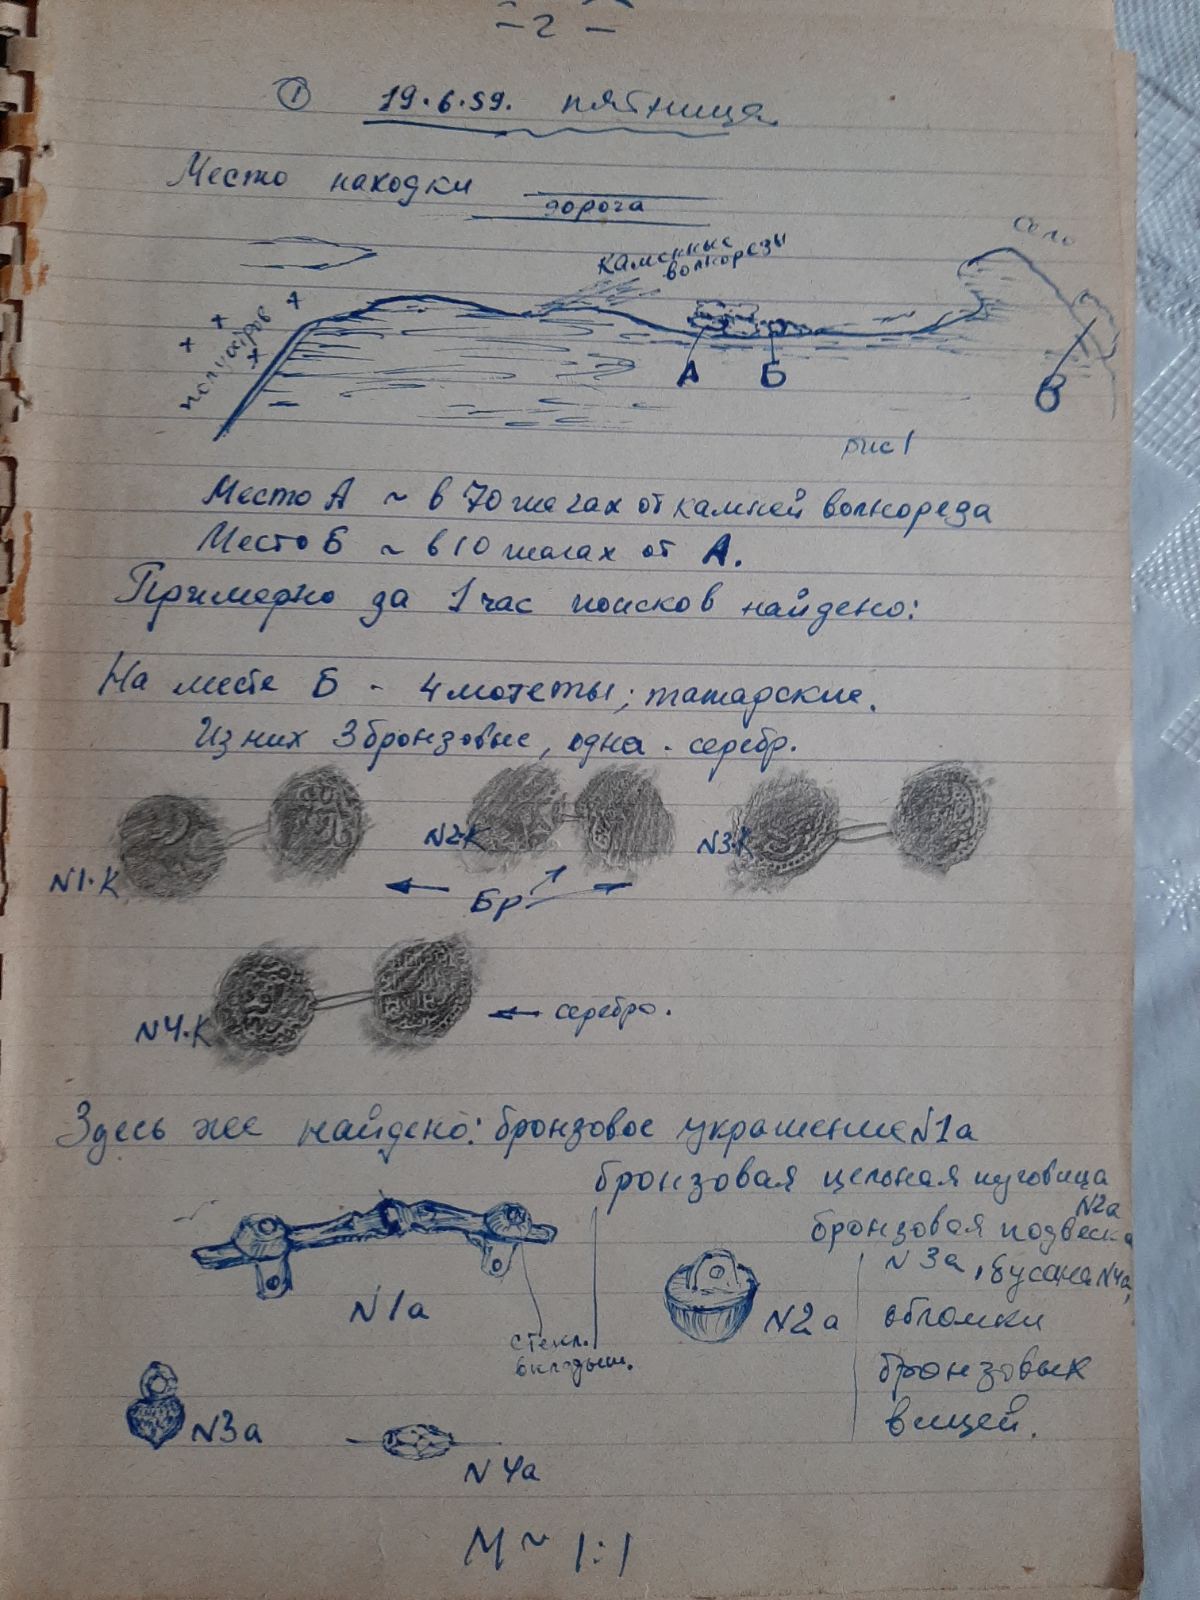 - 2 -
① 19.6.59. пятница
Место находки
дорога
село
каменные
волнорезы
А Б
В
рис 1
Место А ~ в 70 шагах от камней волнореза
Место Б ~ в 10 шагах от А.
Примерно за 1 час поисков найдено:
На месте Б - 4 монеты; татарские.
Из них 3 бронзовые, одна - серебр.
N1·К N2·К N3·К
Бр
N4·К серебро.
Здесь же найдено: бронзовое украшение N1а
бронзовая цельная пуговица
N2а
бронзовая подвеска
N3а, бусина N4а,
обломки
бронзовых
вещей.
N1а
стекл.
вкладыш.
N2а
N3а
N4а
М ~ 1:1